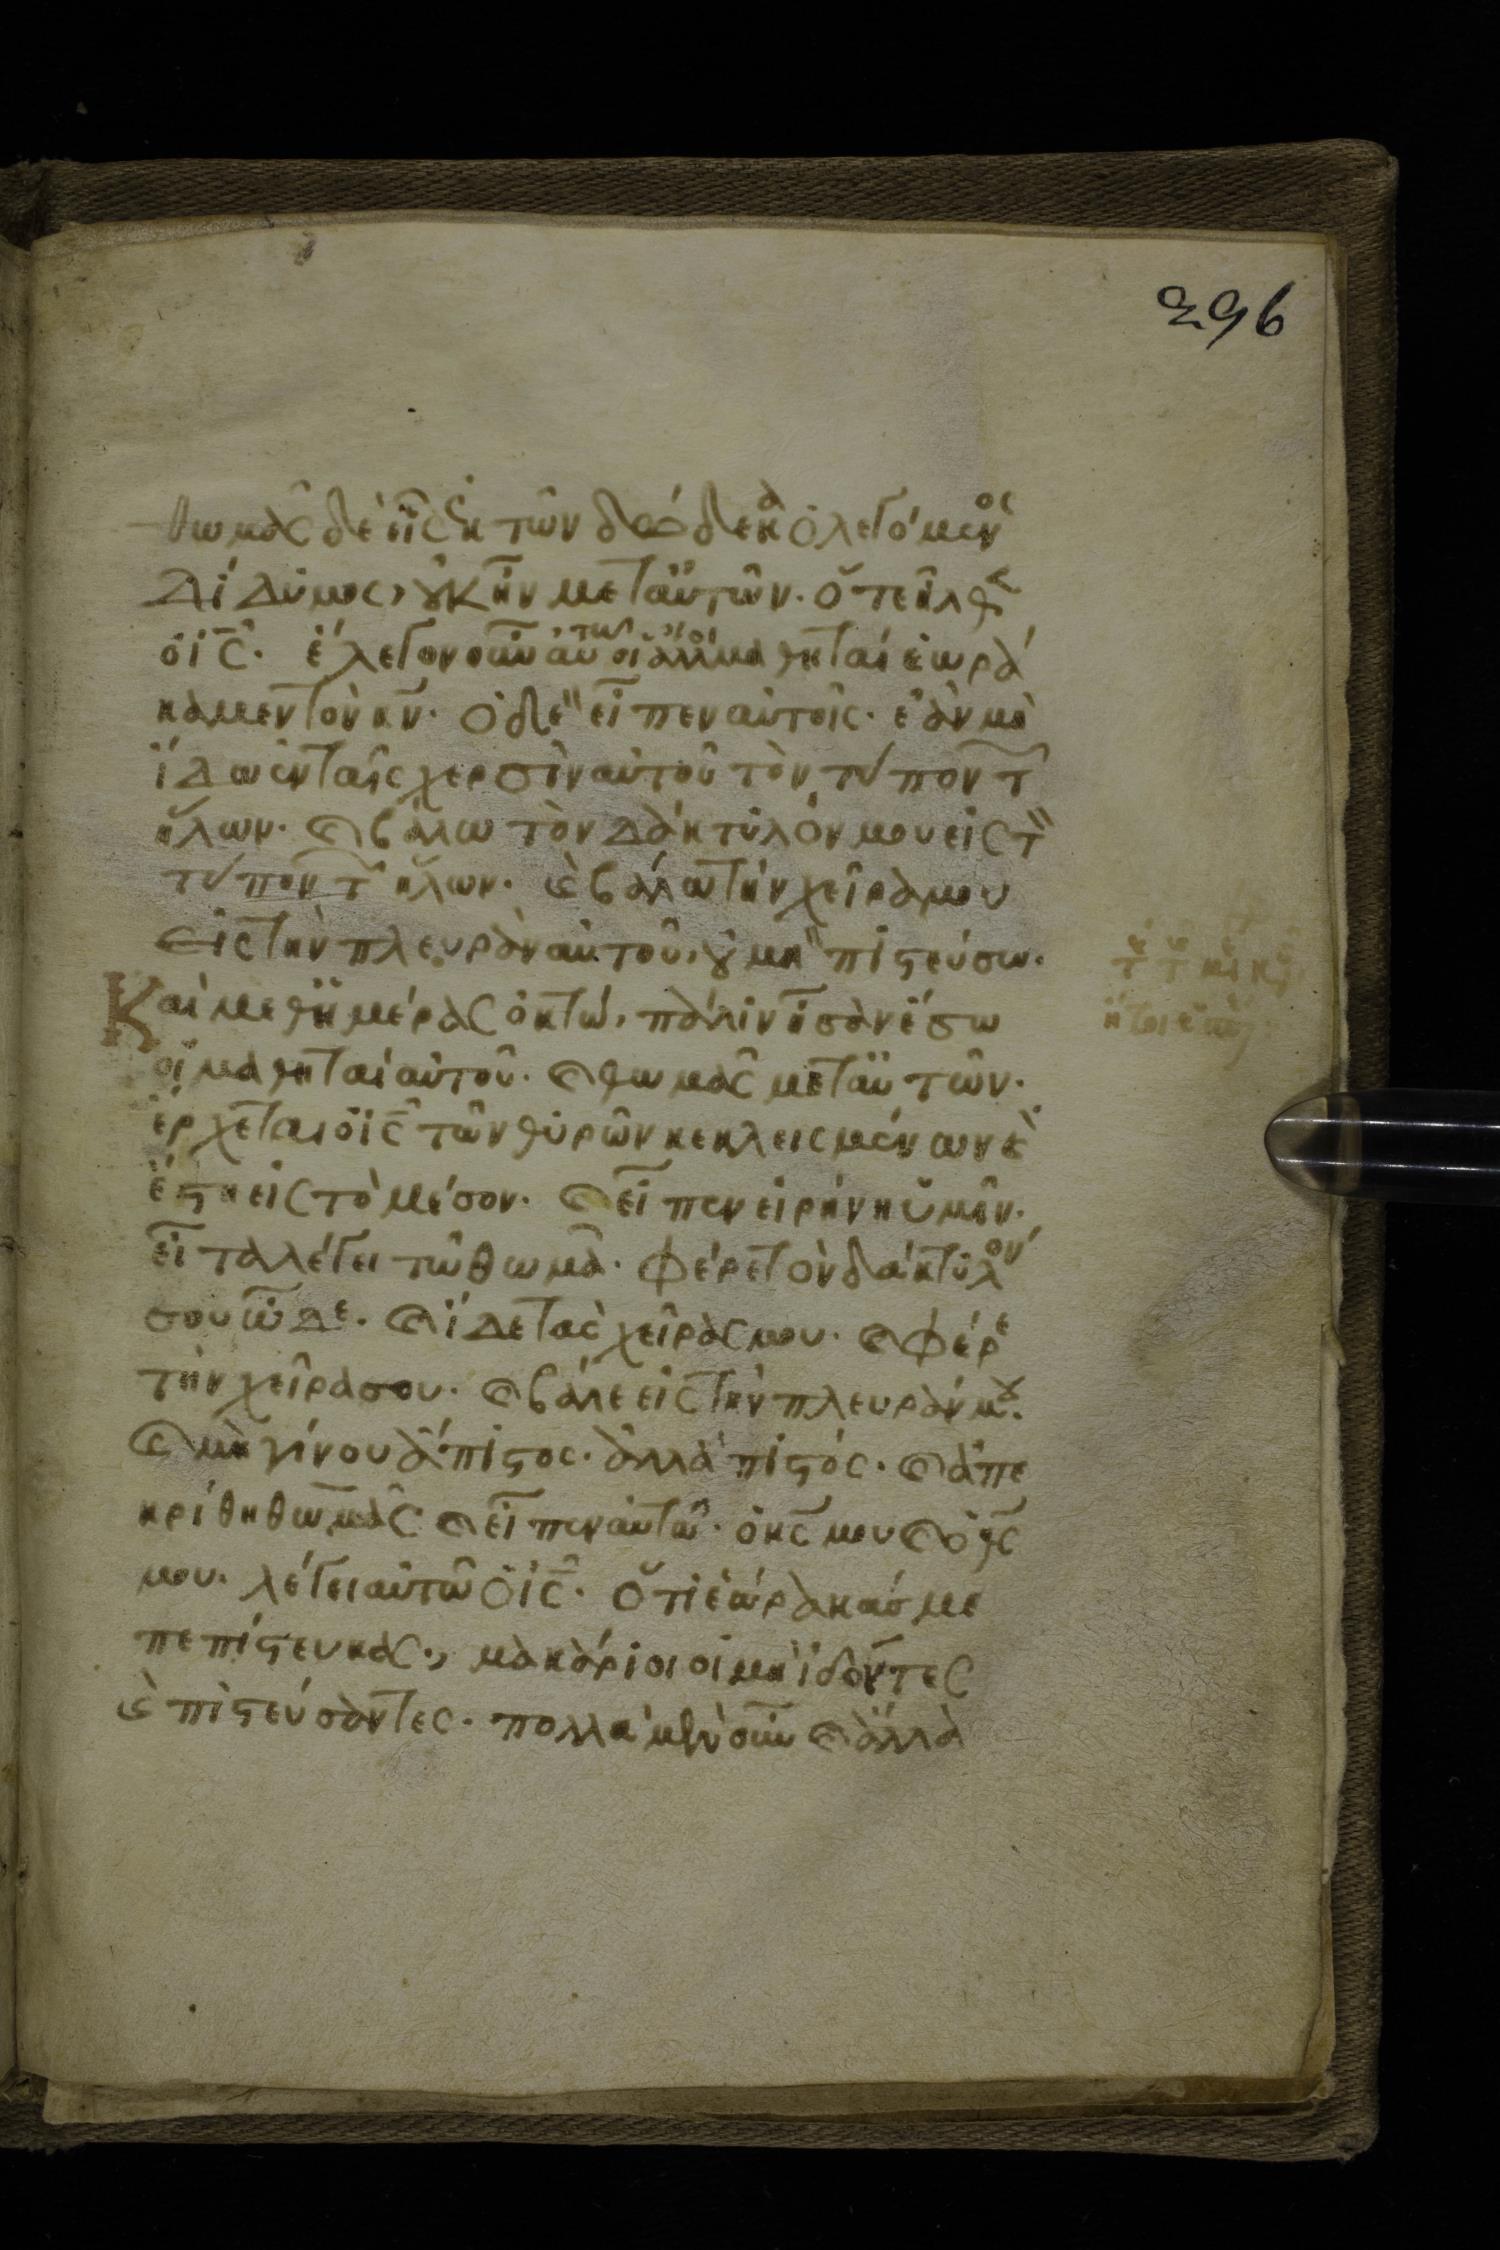 296
θωμᾶς δὲ εἷς ἐκ τῶν δώδεκα ὁ λεγόμενος
Δίδυμος, οὐκ ἦν μετ αὐτῶν. ὅτε ἦλθεν
ὁ ις. ἔλεγον οὖν αὐτῶ οἱ ἄλλοι μαθηταί ἑωρά
καμεν τὸν κν. ὁ δὲ εἶπεν αὐτοῖς. ἐὰν μὴ
ἴδω ἐν ταῖς χερσὶν αὐτοῦ τὸν τύπον τῶν
ἥλων. καὶ βάλω τὸν δάκτυλόν μου εἰς τὸν
τύπον τῶν ἥλων. καὶ βάλω τὴν χεῖρα μου
εἰς τὴν πλευρὰν αὐτοῦ, οὐ μὴ πιστεύσω.
Καὶ μεθ ἡμέρας ὀκτώ, πάλιν ἦσαν ἔσω
οἱ μαθηταὶ αὐτοῦ. καὶ θωμᾶς μετ αὐτῶν.
ἔρχεται ὁ ις τῶν θυρῶν κεκλεισμένων καὶ
ἔστη εἰς τὸ μέσον. καὶ εἶπεν εἰρήνη ὑμῖν.
εἶτα λέγει τῶ θωμᾶ. φέρε τὸν δάκτυλόν
σου ὧδε. καὶ ἴδε τὰς χεῖρας μου. καὶ φέρε
τὴν χεῖρα σου. καὶ βάλε εἰς τὴν πλευράν μου.
καὶ μὴ γίνου ἄπιστος. ἀλλὰ πιστός. καὶ ἀπε
κρίθη θωμᾶς καὶ εἶπεν αὐτῶ. ὁ κς μου καὶ ὁ θς
μου. λέγει αὐτῶ ὁ ις. ὅτι ἑώρακάς με
πεπίστευκας., μακάριοι οἱ μὴ ἰδόντες
καὶ πιστεύσαντες. πολλὰ μὲν οὖν καὶ ἄλλα